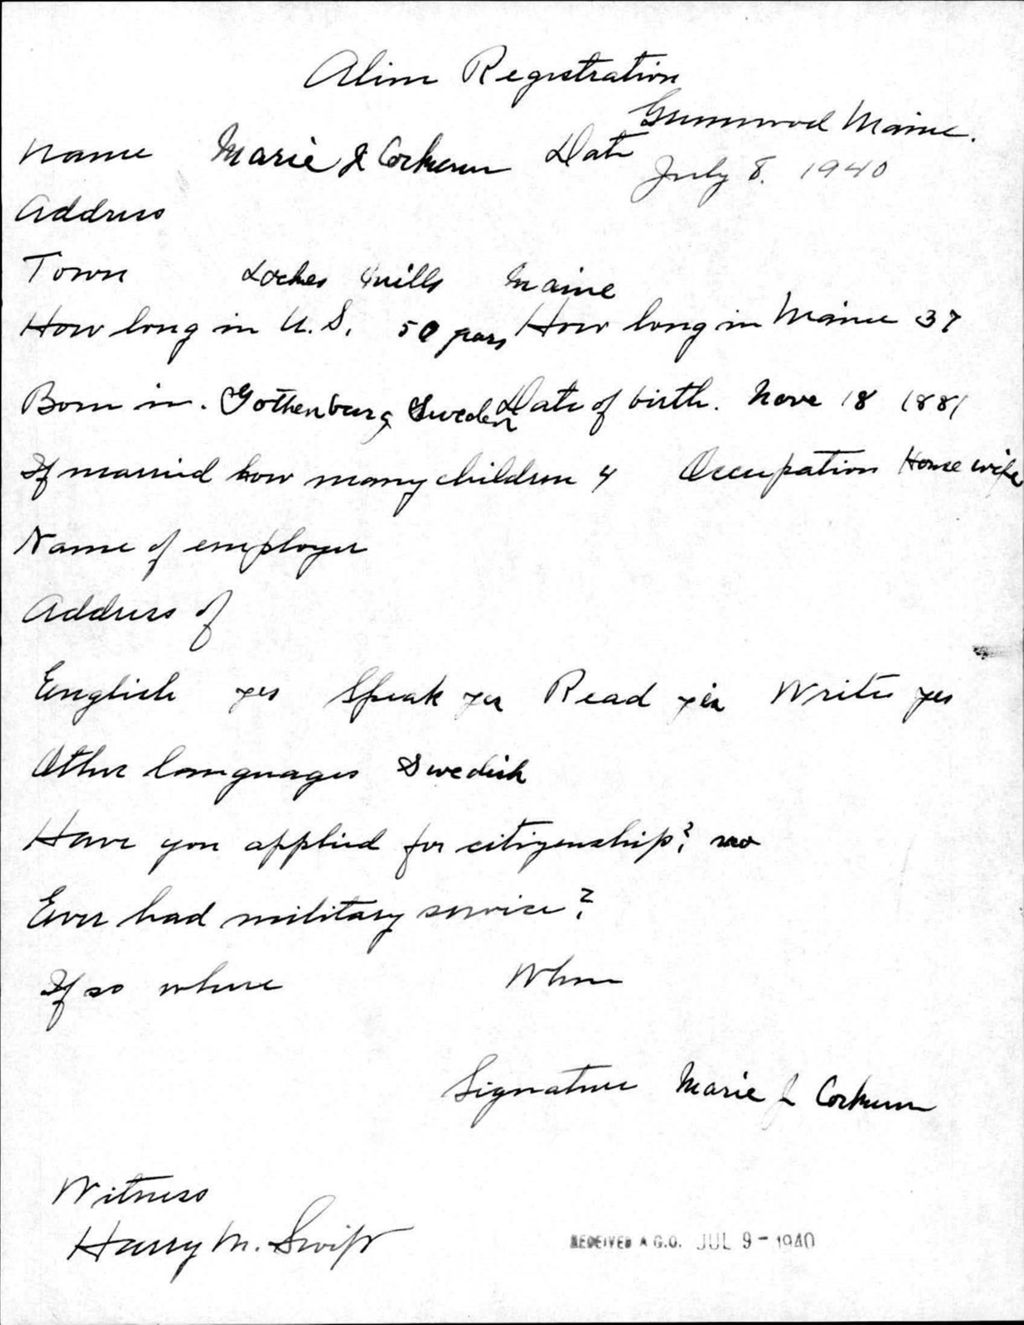 Alien Registration
Greenwood Maine.
Name Marie J Corkum Date July 8. 1940
Address
Town Lockes Mills Maine
How long in U.S. 50 years How long in Maine 37
Born in. Gothenburg Sweden Date of birth. Nove 18 1881
If married how many children 4 Occupation House wife
Name of employer
Address of
English yes Speak yes Read yes Write yes
Other languages Swedish
Have you applied for citizenship? no
Ever had military service?
If so where When
Signature Marie J Corkum
Witness
Harry M. Swift
RECEIVED A.G.O. JUL 9 - 1940